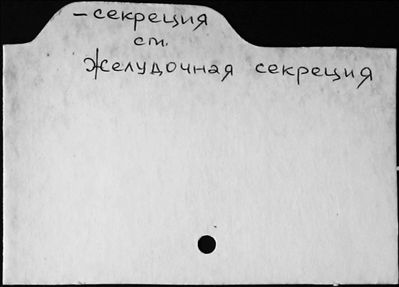 – секреция
см.
Желудочная секреция